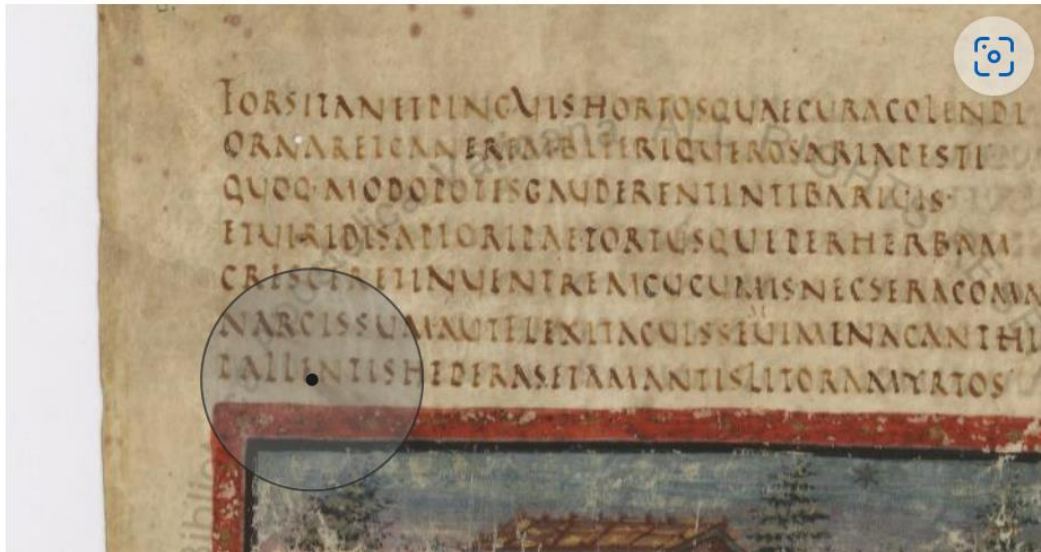 FORSITANETPINGUISHORTOSQUAECURACOLENDI
ORNARETCANEREMBIFERIQUEROSARIAPESTI
QUOQ·MODOPOTISGAUDERENTINTIBARIUIS·
ETUIRIDISAPIORIPAETORTUSQUEPERHERBAM
CRESCERETINUENTREMCUCUMISNECSERACOMAN
NARCISSUMAUTFLEXITACUISSEUIMENACANTHI
PALLENTISHEDERASETAMANTISLITORAMYRTOS